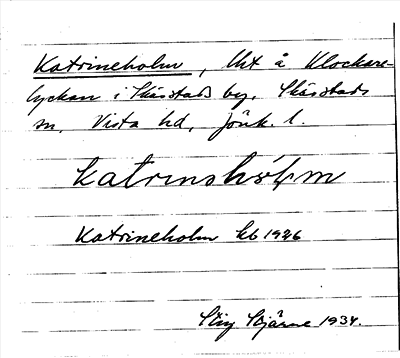 Katrineholm, lht å Klockare-
lyckan i Skärstads by, Skärstads
sn, Vista hd, Jönk. l.
katrinshol̀m
Katrineholm kb 1926
Stig Stjärne 1934.